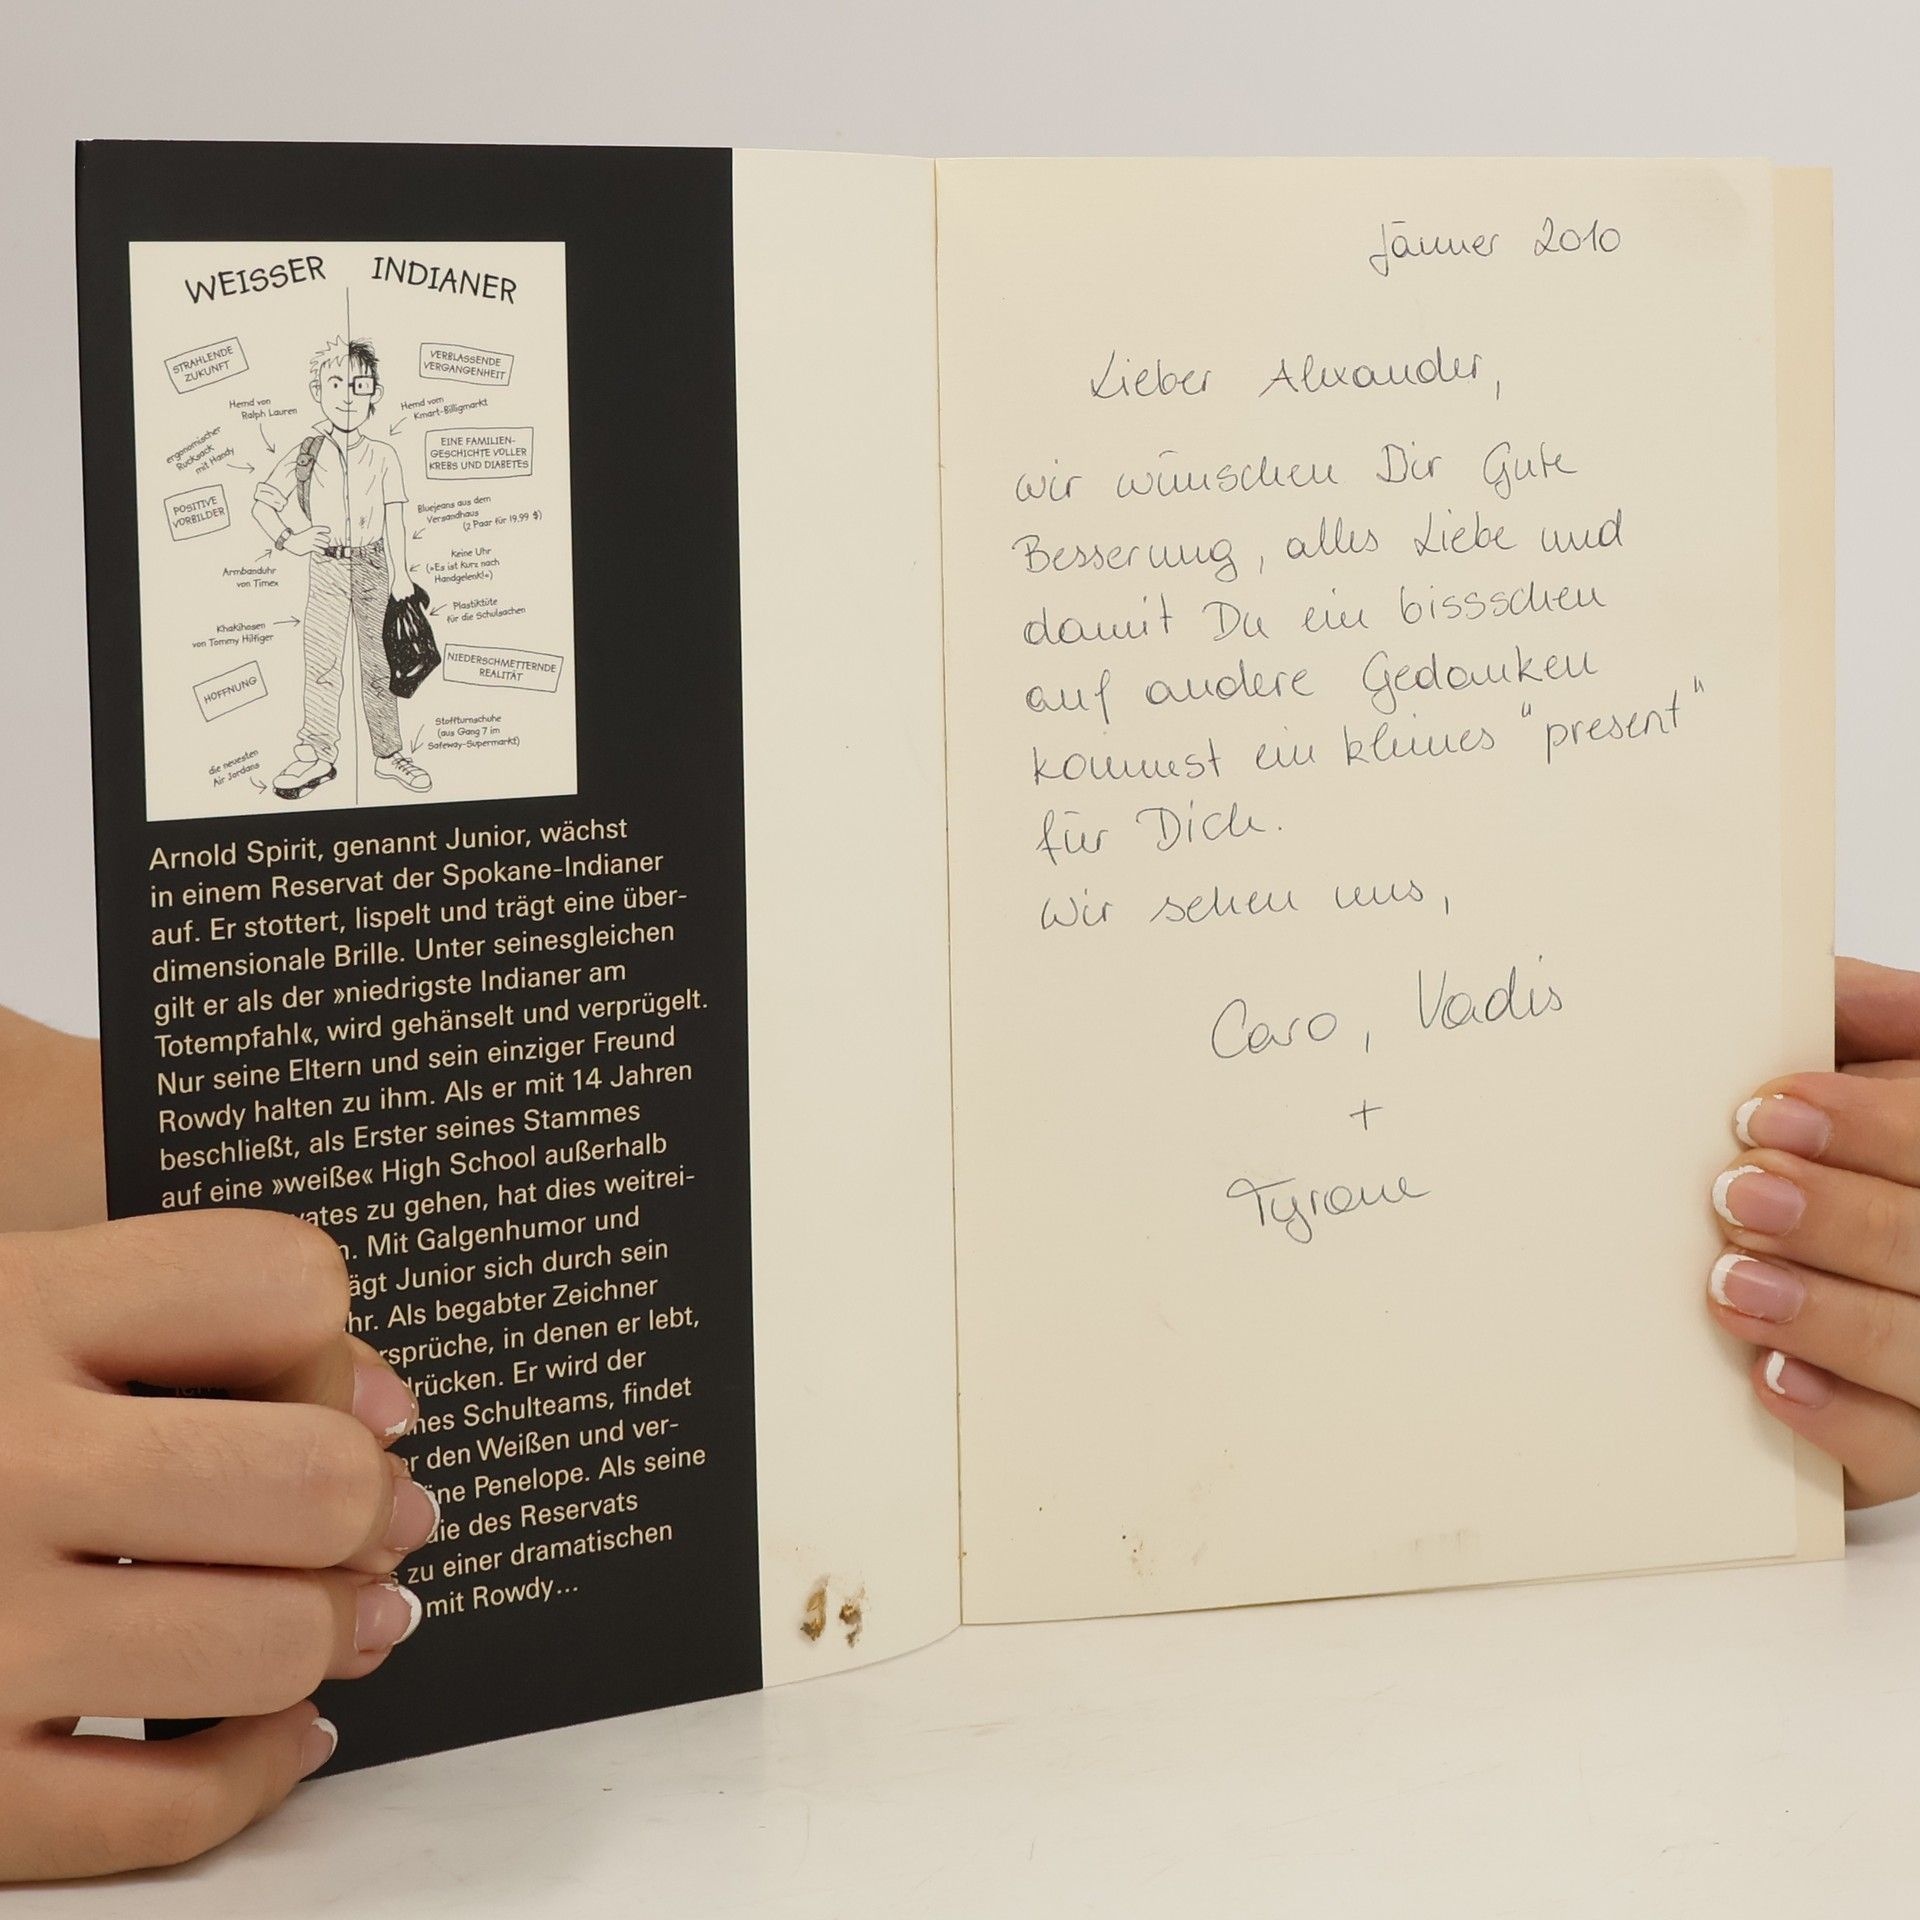 WEISSER INDIANER
STRAHLENDE
ZUKUNFT
VERBLASSENDE
VERGANGENHEIT
Hemd von
Ralph Lauren
Hemd vom
Kmart-Billigmarkt
ergonomischer
Rucksack
mit Handy
EINE FAMILIEN-
GESCHICHTE VOLLER
KREBS UND DIABETES
POSITIVE
VORBILDER
Bluejeans aus dem
Versandhaus
(2 Paar für 19,99 $)
Armbanduhr
von Timex
Keine Uhr
(»Es ist kurz nach
Handgelenk!«)
Plastiktüte
für die Schulsachen
Khakihosen
von Tommy Hilfiger
NIEDERSCHMETTERNDE
REALITÄT
HOFFNUNG
Stoffturnschuhe
(aus Gang 7 im
Safeway-Supermarkt)
die neuesten
Air Jordans
Arnold Spirit, genannt Junior, wächst
in einem Reservat der Spokane-Indianer
auf. Er stottert, lispelt und trägt eine über-
dimensionale Brille. Unter seinesgleichen
gilt er als der »niedrigste Indianer am
Totempfahl«, wird gehänselt und verprügelt.
Nur seine Eltern und sein einziger Freund
Rowdy halten zu ihm. Als er mit 14 Jahren
beschließt, als Erster seines Stammes
auf eine »weiße« High School außerhalb
vates zu gehen, hat dies weitrei-
n. Mit Galgenhumor und
ägt Junior sich durch sein
hr. Als begabter Zeichner
rsprüche, in denen er lebt,
drücken. Er wird der
nes Schulteams, findet
er den Weißen und ver-
öne Penelope. Als seine
die des Reservats
s zu einer dramatischen
mit Rowdy...
Jänner 2010
Lieber Alexander,
wir wünschen Dir Gute
Besserung, alles Liebe und
damit Du ein bissschen
auf andere Gedanken
kommst ein kleines "present"
für Dich.
Wir sehen uns,
Caro, Vadis
+
Tyrone